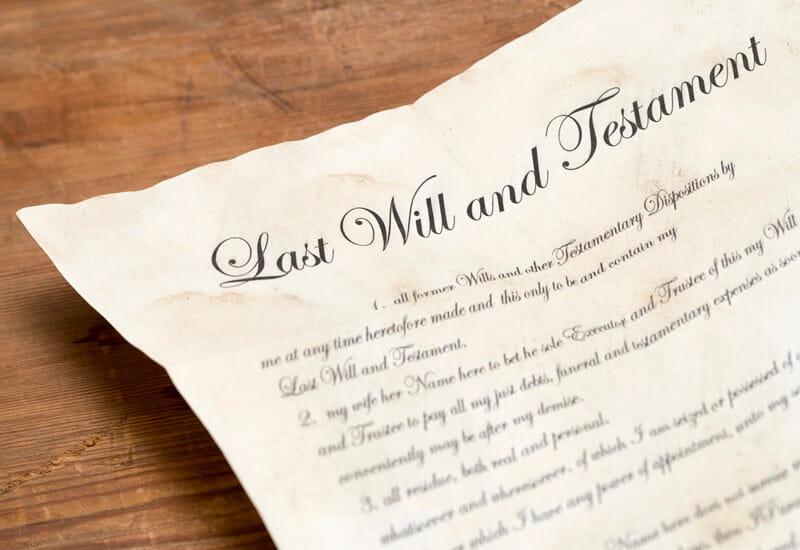 Last Will and Testament
1. all former Wills and other Testamentary Dispositions by
me at any time heretofore made and this only to be and contain my
Last Will and Testament.
2. my wife her Name here to bet he sole Executor and Trustee of this my Will
and Trustee to pay all my just debts, funeral and testamentary expenses as soon
conveniently may be after my demise.
3. all residue, both real and personal,
whatsoever and wheresoever, of which I am seized or possessed of
or which I have any power of appointment, unto my
Name here does not survive